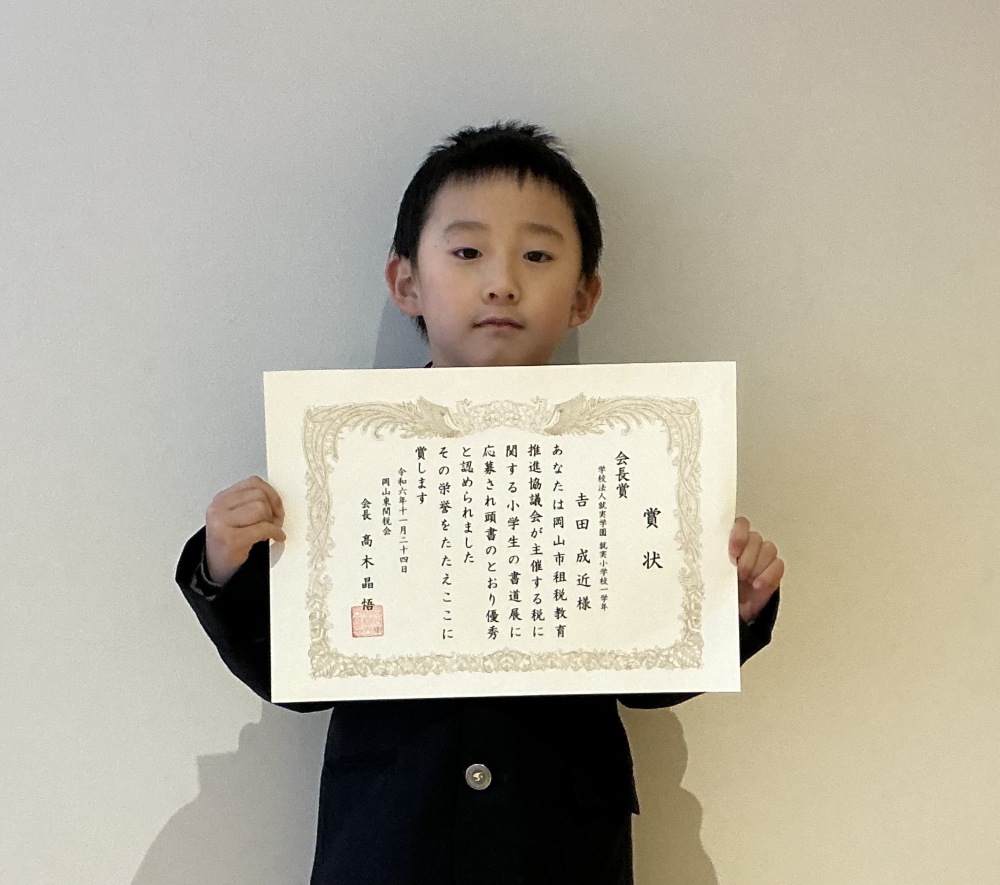 賞状
会長賞
学校法人就実学園 就実小学校一学年
𠮷田成近様
あなたは岡山市租税教育
推進協議会が主催する税に
関する小学生の書道展に
応募され頭書のとおり優秀
と認められました
その栄誉をたたえここに
賞します
令和六年十一月二十四日
岡山東間税会
会長 髙木晶悟